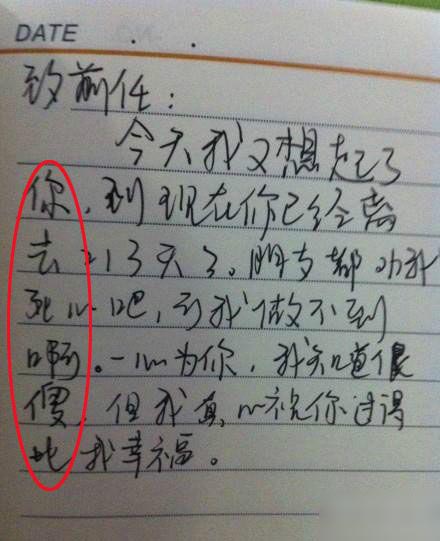 DATE . .
致前任：
今天我又想起了
你，到现在你已经离
去213天了。朋友都劝我
死心吧，可我做不到
啊。一心为你，我知道很
傻，但我真心祝你过得
比我幸福。